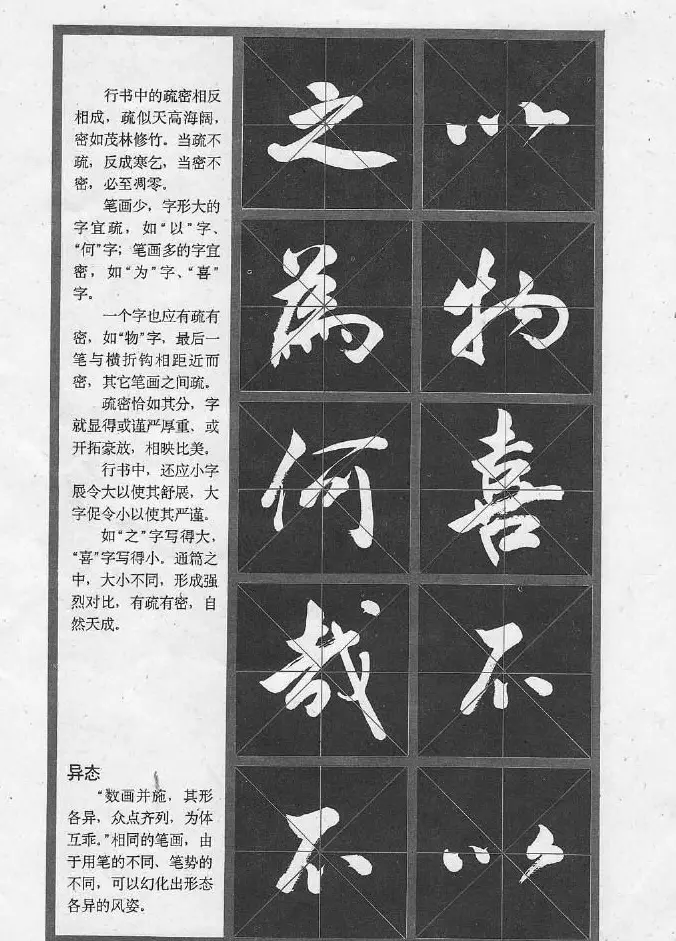 行书中的疏密相反
相成，疏似天高海阔，
密如茂林修竹。当疏不
疏，反成寒乞，当密不
密，必至凋零。
笔画少，字形大的
字宜疏，如“以”字、
“何”字；笔画多的字宜
密，如“为”字、“喜”
字。
一个字也应有疏有
密，如“物”字，最后一
笔与横折钩相距近而
密，其它笔画之间疏。
疏密恰如其分，字
就显得或谨严厚重、或
开拓豪放，相映比美。
行书中，还应小字
展令大以使其舒展，大
字促令小以使其严谨。
如“之”字写得大，
“喜”字写得小。通篇之
中，大小不同，形成强
烈对比，有疏有密，自
然天成。
异态
“数画并施，其形
各异，众点齐列，为体
互乖。”相同的笔画，由
于用笔的不同、笔势的
不同，可以幻化出形态
各异的风姿。
以物喜不以
之為何哉不